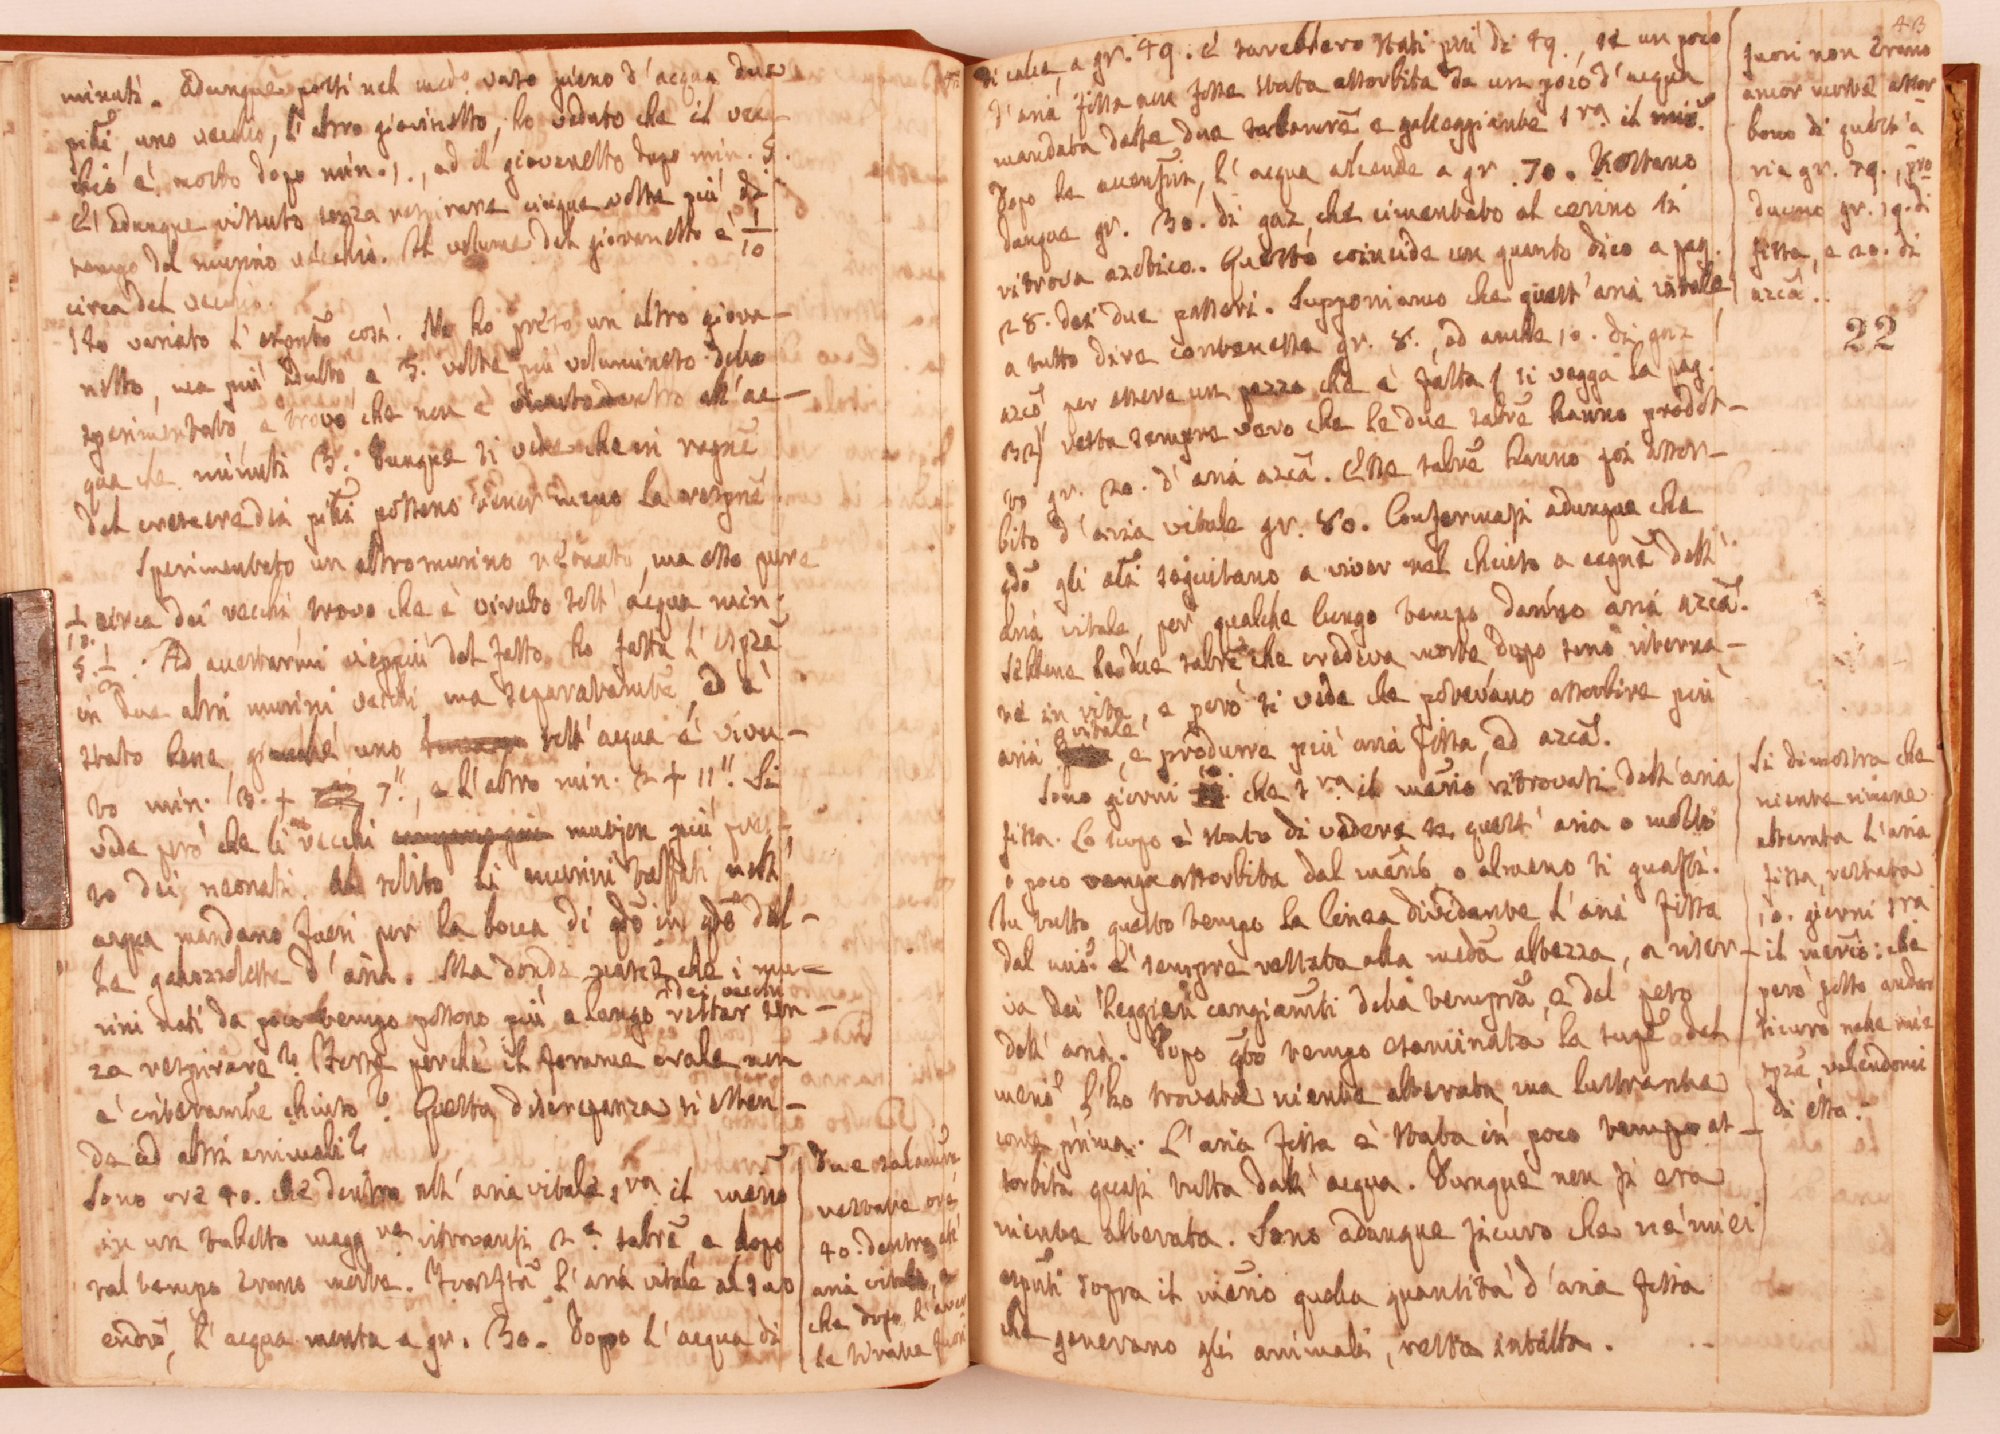 minuti. Adunque posti nel med.° vaso pieno d'acqua due
piĉi, uno vecchio, l'altro giovinetto, ho veduto che il vec-
chio è morto dopo min. 1., ed il giovanetto dopo min. 5.
È adunque vissuto senza respirare cinque volte più di
tempo del murino vecchio. Il volume del giovanetto è 1/10
circa del vecchio.
Ho variato l'espŏto così. Ne ho preso un altro giova-
netto, ma più adulto, e 5. volte più voluminoso dello
sperimentato, e trovo che non è dentro all'ac-
qua che minuti 3. Dunque si vede che in ragnē
del crescere dei piĉi possono tener meno la respnē
Sperimentato un altro murino neonato, ma esso pure
1/10. circa dei vecchi, trovo che è vivuto sott'acqua min.
5. 1/2. Ad accertarmi vieppiù del fatto ho fatta l'espza
in due altri murini vecchi, ma separatamte, ed è
stato bene, giacchè uno sott'acqua è vivu-
to min. 3. + 7'', e l'altro min. 2 + 11''. Si
vede però che li vecchi muojon più pres-
to dei neonati. Al solito li murini tuffati nell'
acqua mandano fuori per la bocca di qdo in qdo del-
le gallozzolette d'aria. Ma donde nasce che i mu-
rini nati da poco tempo possono più a lungo dei vecchi restar sen-
za respirare? Forse perchè il forame ovale non
è interamte chiuso? Questa discrepanza si esten-
de ad altri animali?
Sono ore 40. che dentro nell'aria vitale, sra il mercio
in un tubetto magg.re ritrovansi 2.e salare, e dopo
tal tempo erano morte. l'aria vitale al suo
, l'acqua monta a gr. 30. Dopo l'acqua di
Due salamre
restate ore
40. dentro all'
aria vitale, e
che dopo l'aver
le tirate fuori
43
di calce, a gr. 49. e sarebbero stati più di 49., se un poco
d'aria fissa non fosse stata assorbita da un poco d'acqua
mandata dalle due salamre e galleggiante sra il mio.
Dopo la accensne, l'acqua ascende a gr. 70. Restano
dunque gr. 30. di gaz, che cimentato al cerino si
ritrova azotico. Questo coincide con quanto dico a pag.
28. dei due passeri. Supponiamo che quest'aria vitale
a tutto dire contenesse gr. 8., ed anche 10. di gaz
azco per essere un pezzo che è fatta (si vegga la pag.
32) resta sempre vero che le due salare hanno prodot-
to gr. 20. d'aria azca. Esse salare hanno poi assor-
bito d'aria vitale gr. 80. Confermasi adunque che
qdo gli ali seguitano a viver nel chiuso a cagne dell'
aria vitale, per qualche lungo tempo danno aria azca.
Sebbene le due salare che credeva morte dopo sono riterna-
te in vita, e però si vede che potevano assorbire più
aria vitale, e produrre più aria fissa, ed azca.
Sono giorni 10. che sra il mercio ritrovasi dell'aria
fissa. Lo scopo è stato di vedere se quest'aria o molto
o poco venga assorbita dal mercio o almeno si guasti.
In tutto questo tempo la linea dividente l'aria fissa
dal mio. è sempre restata alla meda altezza, a riser-
va dei leggieri cangiamti della tempra, e del peso
dell'aria. Dopo qto tempo esaminata la supe del
mercio l'ho trovata niente alterata, ma lustrante
come prima. L'aria fissa è stata in poco tempo as-
sorbita quasi tutta dall'acqua. Dunque non si era
niente alterata. Sono adunque sicuro che ne' miei
espti sopra il mercio quella quantità d'aria fissa
che generano gli animali, resta intatta.
fuori non erano
ancor morte assor-
bono di quest'a
ria gr. 79., pro
ducono gr. 19. di
fissa, e 20. di
azca.
22
Si dimostra che
niente rimane
alterata l'aria
fissa, restata
10. giorni sra
il mercio: che
però posso andar
sicuro nelle mie
spze, valendomi
di esso.